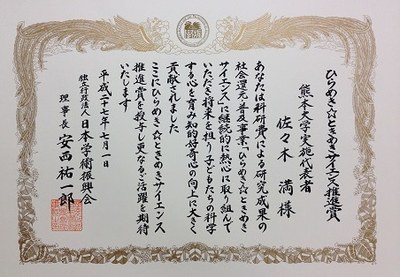 ひらめき☆ときめきサイエンス推進賞
熊本大学実施代表者
佐々木 満 様
あなたは科研費による研究成果の
社会還元・普及事業「ひらめき☆ときめき
サイエンス」に継続的に熱心に取り組んで
いただき将来を担う子どもたちの科学
する心を育み知的好奇心の向上に大きく
貢献されました
ここにひらめき☆ときめきサイエンス
推進賞を授与し更なるご活躍を期待
いたします
平成二十七年七月一日
独立行政法人日本学術振興会
理事長 安西祐一郎